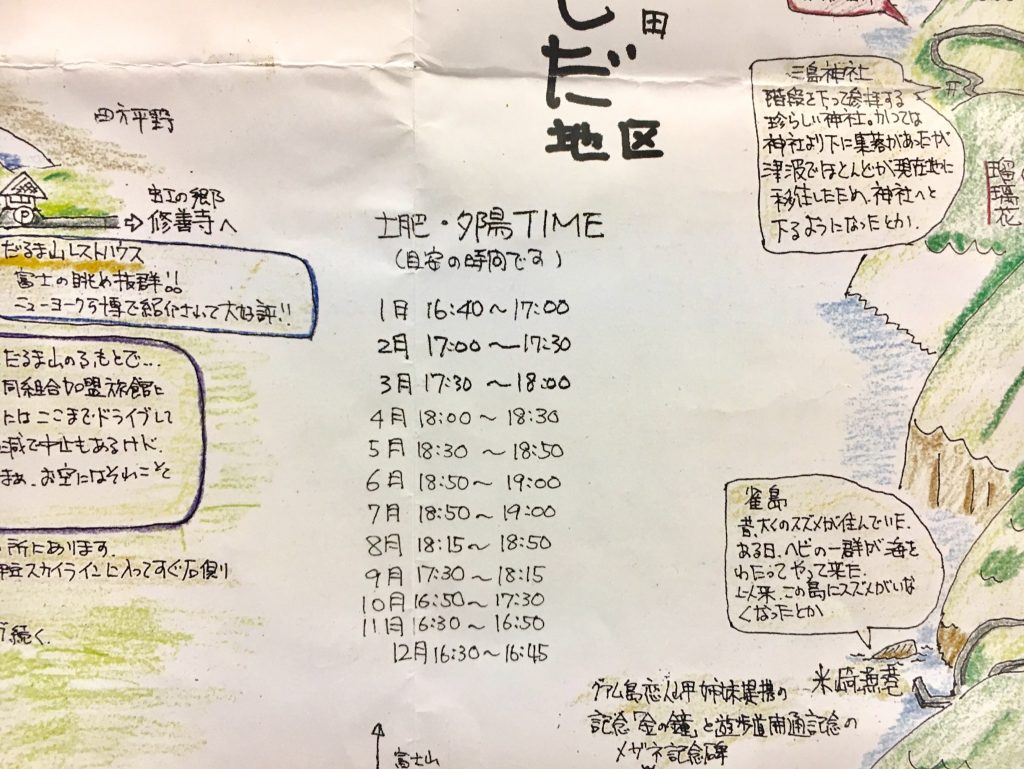 し
だ
田
地区
田方平野
虹の郷
修善寺へ
P
だるま山レストハウス
富士の眺め抜群!!
ニューヨーク万博で紹介されて大好評!!
だるま山のふもとで…
同組合加盟旅館と
にはここまでドライブして
減で中止もあるけド.
まぁ、お空にはそれこそて
所にあります.
スカイラインに入ってすぐ右側り
続く.
土肥・夕陽TIME
(目安の時間です)
1月 16:40～17:00
2月 17:00～17:30
3月 17:30～18:00
4月 18:00～18:30
5月 18:30～18:50
6月 18:50～19:00
7月 18:50～19:00
8月 18:15～18:50
9月 17:30～18:15
10月 16:50～17:30
11月 16:30～16:50
12月 16:30～16:45
富士山
三島神社
階段を下って参拝する
珍らしい神社。かつては
神社より下に集落があったが
津波でほとんどが現在地に
移住したため、神社へと
下るようになったとか.
瑠璃花
雀島
昔、大くのスズメが住んでいた.
ある日、ヘビの一群が海を
わたってやって来た.
以来、この島にスズメがいな
くなったとか
米崎
グァム島恋人岬姉妹提携の
記念「金の鐘」と遊歩道開通記念の
メガネ記念碑